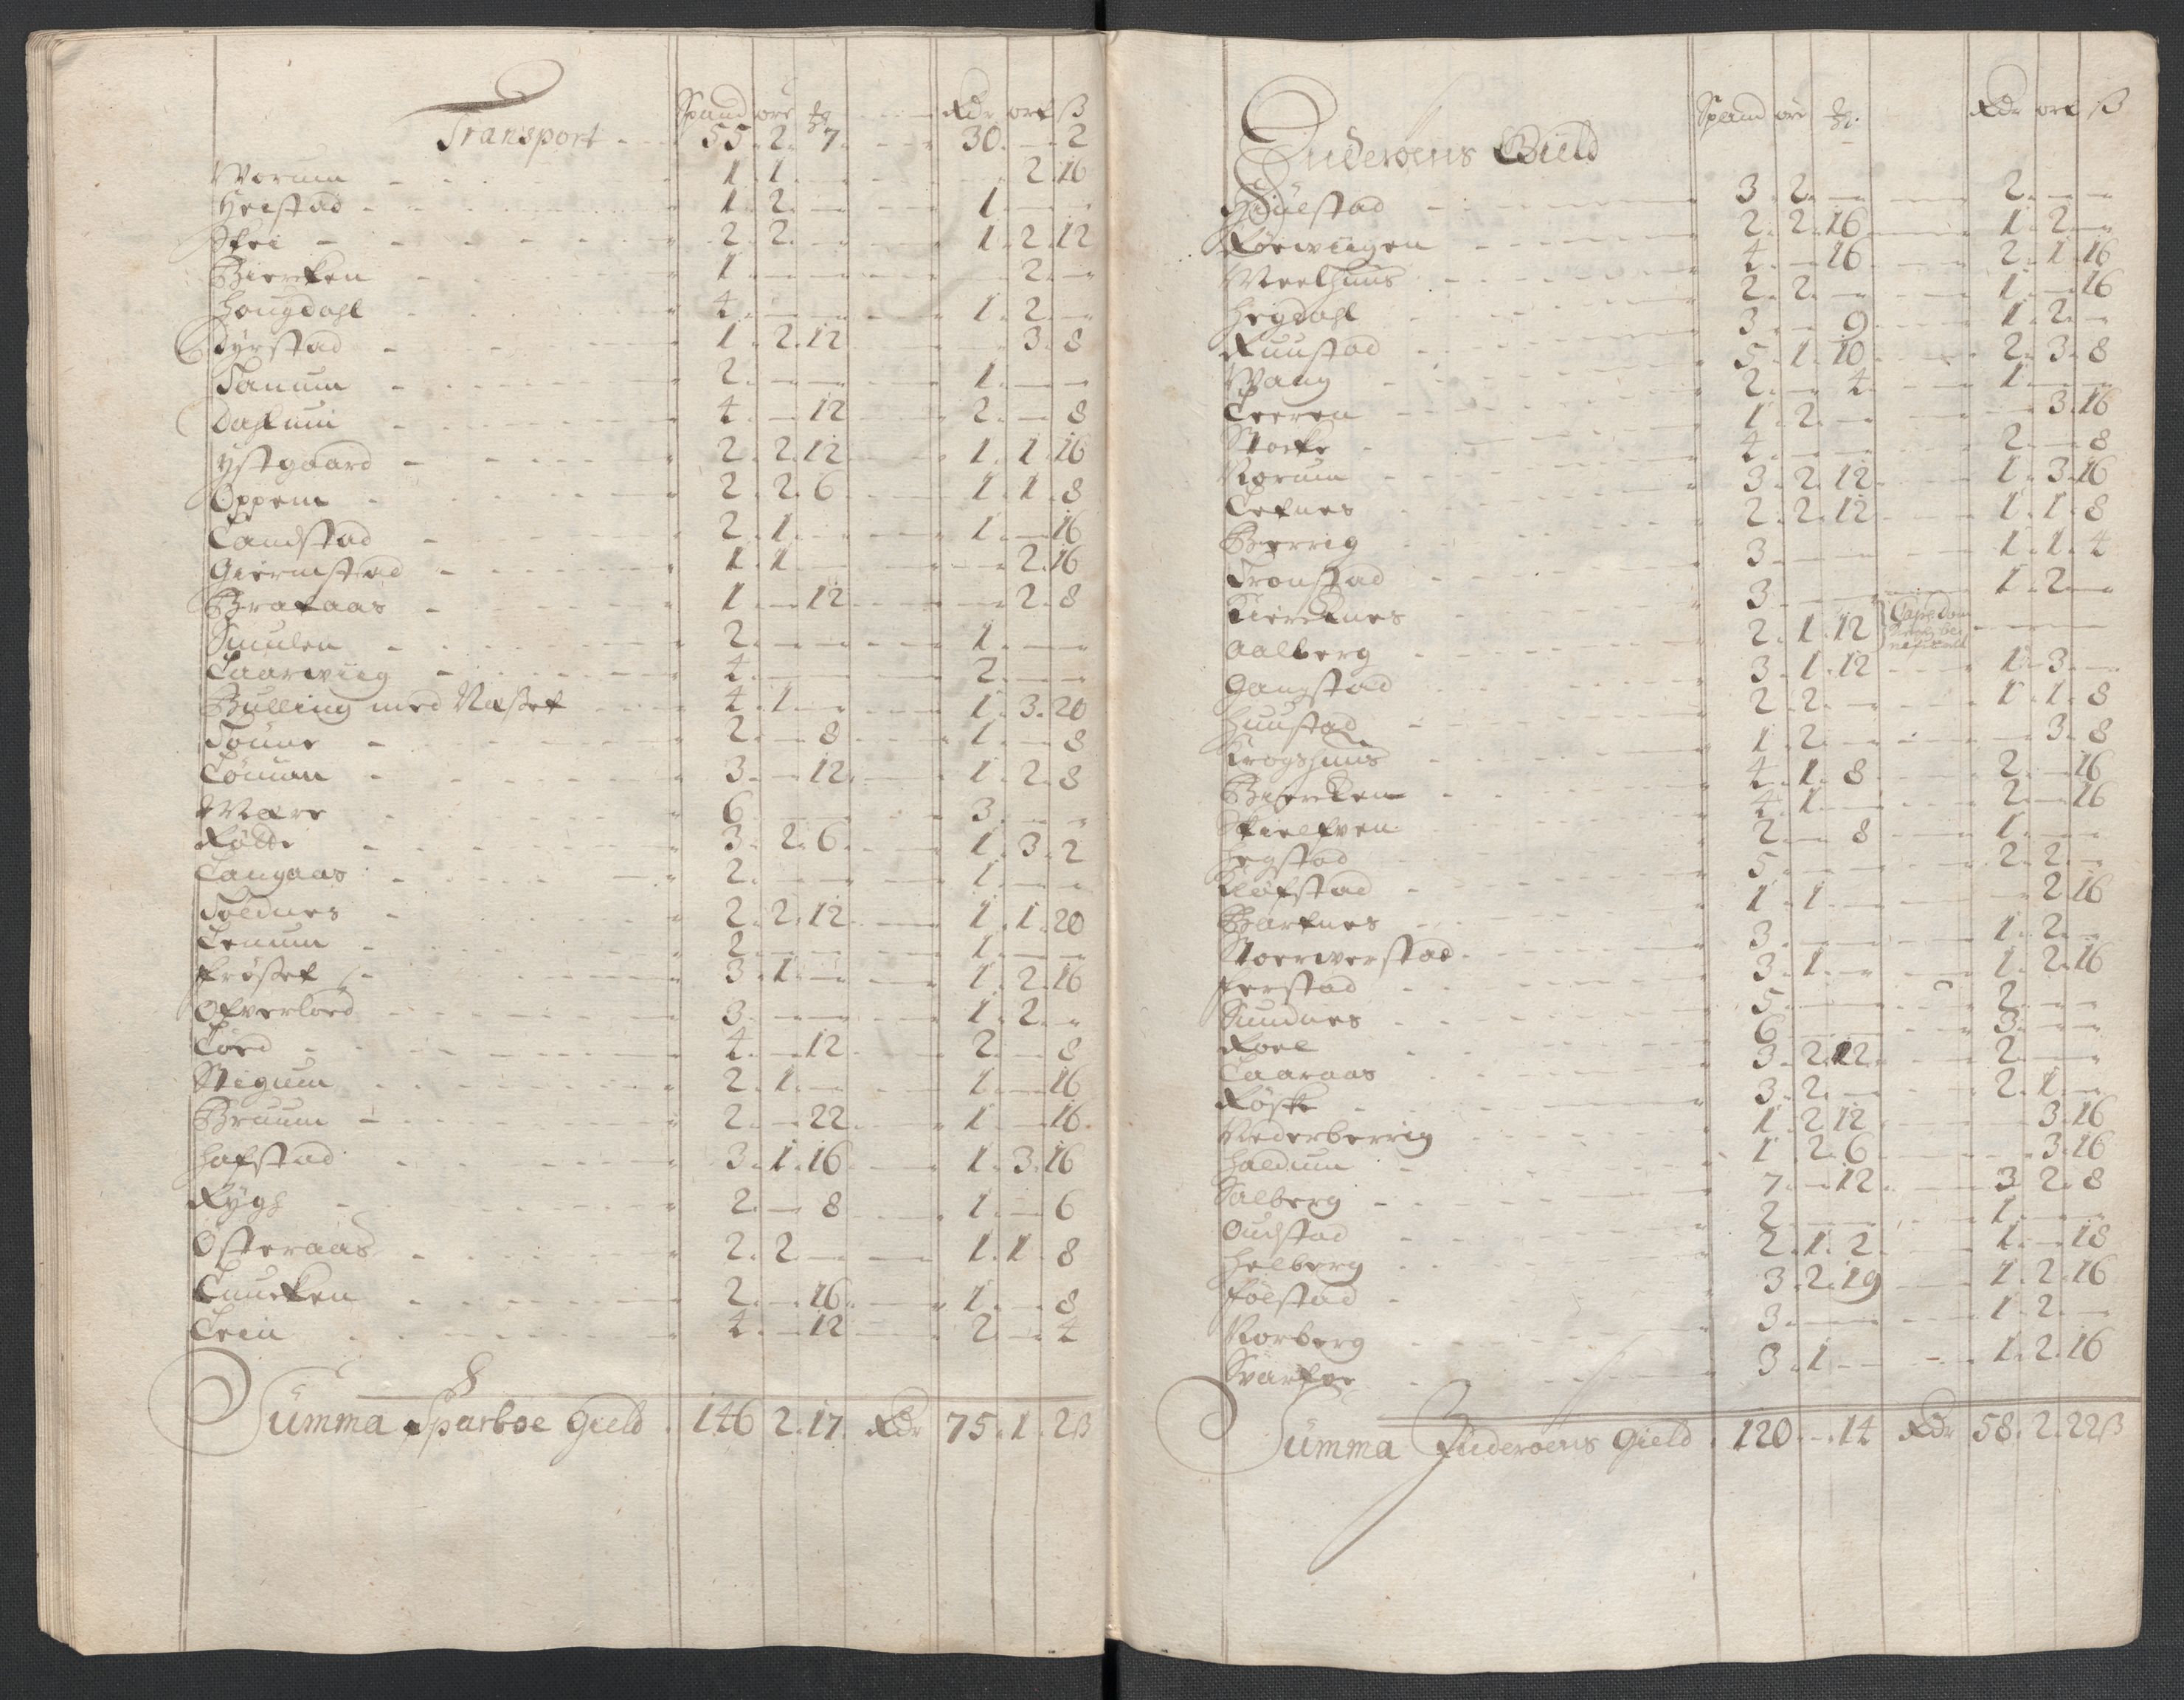 Spand ore ℔ Rdr ort ß
Transport 55 2 7 30 — 2
Worum 1 1 — — 2 16
Heistad 1 2 — 1 — —
Skei 2 2 — 1 2 12
Biercken 1 — — — 2 —
Hougdahl 4 — — 1 2 —
Dyrstad 1 2 12 — 3 8
Tanum 2 — — 1 — —
Dahlum 4 — 12 2 — 8
Ystgaard 2 2 12 1 1 16
Oppem 2 2 6 1 1 8
Landstad 2 1 — 1 — 16
Giermstad 1 1 — — 2 16
Brataas 1 — 12 — 2 8
Smulen 2 — — 1 — —
Laarwiig 4 — — 2 — —
Bulling med Næsset 4 1 — 1 3 20
Toune 2 — 8 1 — 8
Løuman 3 — 12 1 2 8
Mære 6 — — 3 — —
Røttr 3 2 6 1 3 2
Langaas 2 — — 1 — —
Toldnes 2 2 12 1 1 20
Lenum 2 — — 1 — —
Frøsset 3 1 — 1 2 16
Ofverloed 3 — — 1 2 —
Loed 4 — 12 2 — 8
Stigum 2 1 — 1 — 16
Bruum 2 — 22 1 — 16
Hafstad 3 1 16 1 3 16
Rygh 2 — 8 1 — 6
Østeraas 2 2 — 1 1 8
Luncken 2 — 16 1 — 8
Lein 4 — 12 2 — 4
Summa Sparboe Gield 146 2 17 Rdr 75 1 2ß
Spand ore ℔ Rdr ort ß
Inderoens Gield
Hiulstad 3 2 — 2 — —
Rørwiigen 2 2 16 1 2 —
Meelhuus 4 — 16 2 1 16
Hegdahl 2 2 — 1 — 16
Ruustad 3 — 9 1 2 —
Wang 5 1 10 2 3 8
Leeren 2 — 4 1 — —
Stocke 1 2 — — 3 16
Norum 4 — — 2 — 8
Letnes 3 2 12 1 3 16
Berrig 2 2 12 1 1 8
Tronstad 3 — — 1 1 4
Kirchnes 3 — — 1 2 —
Aalberg 2 1 12 — — —
Gangstad 3 1 12 1 3 —
Huustad 2 2 — 1 1 8
Krogshuus 1 2 — — 3 8
Biercken 4 1 8 2 — 16
Skielfven 4 1 — 2 — 16
Hegstad 2 — 8 1 — —
Kløfstad 5 — — 2 2 —
Bartnes 1 1 — — 2 16
Stoerwerstad 3 — — 1 2 —
Ferstad 3 1 — 1 2 16
Sundnes 5 — — 2 — —
Roel 6 — — 3 — —
Laaraas 3 2 12 2 — —
Røske 3 2 — 2 1 —
Nederberrig 1 2 12 — 3 16
Haldum 1 2 6 — 3 16
Salberg 7 — 12 3 2 8
Oudstad 2 — — 1 — —
Helberg 2 1 2 1 — 18
Følstad 3 2 19 1 2 16
Norberg 3 — — 1 2 —
Svartve 3 1 — 1 2 16
Summa Inderoens Gield 120 — 14 Rdr 58 2 22ß